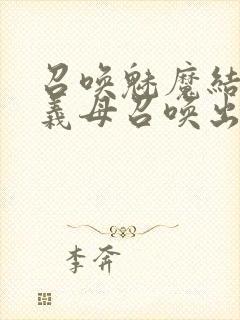 召唤魅魔结
義母召唤出
李奔